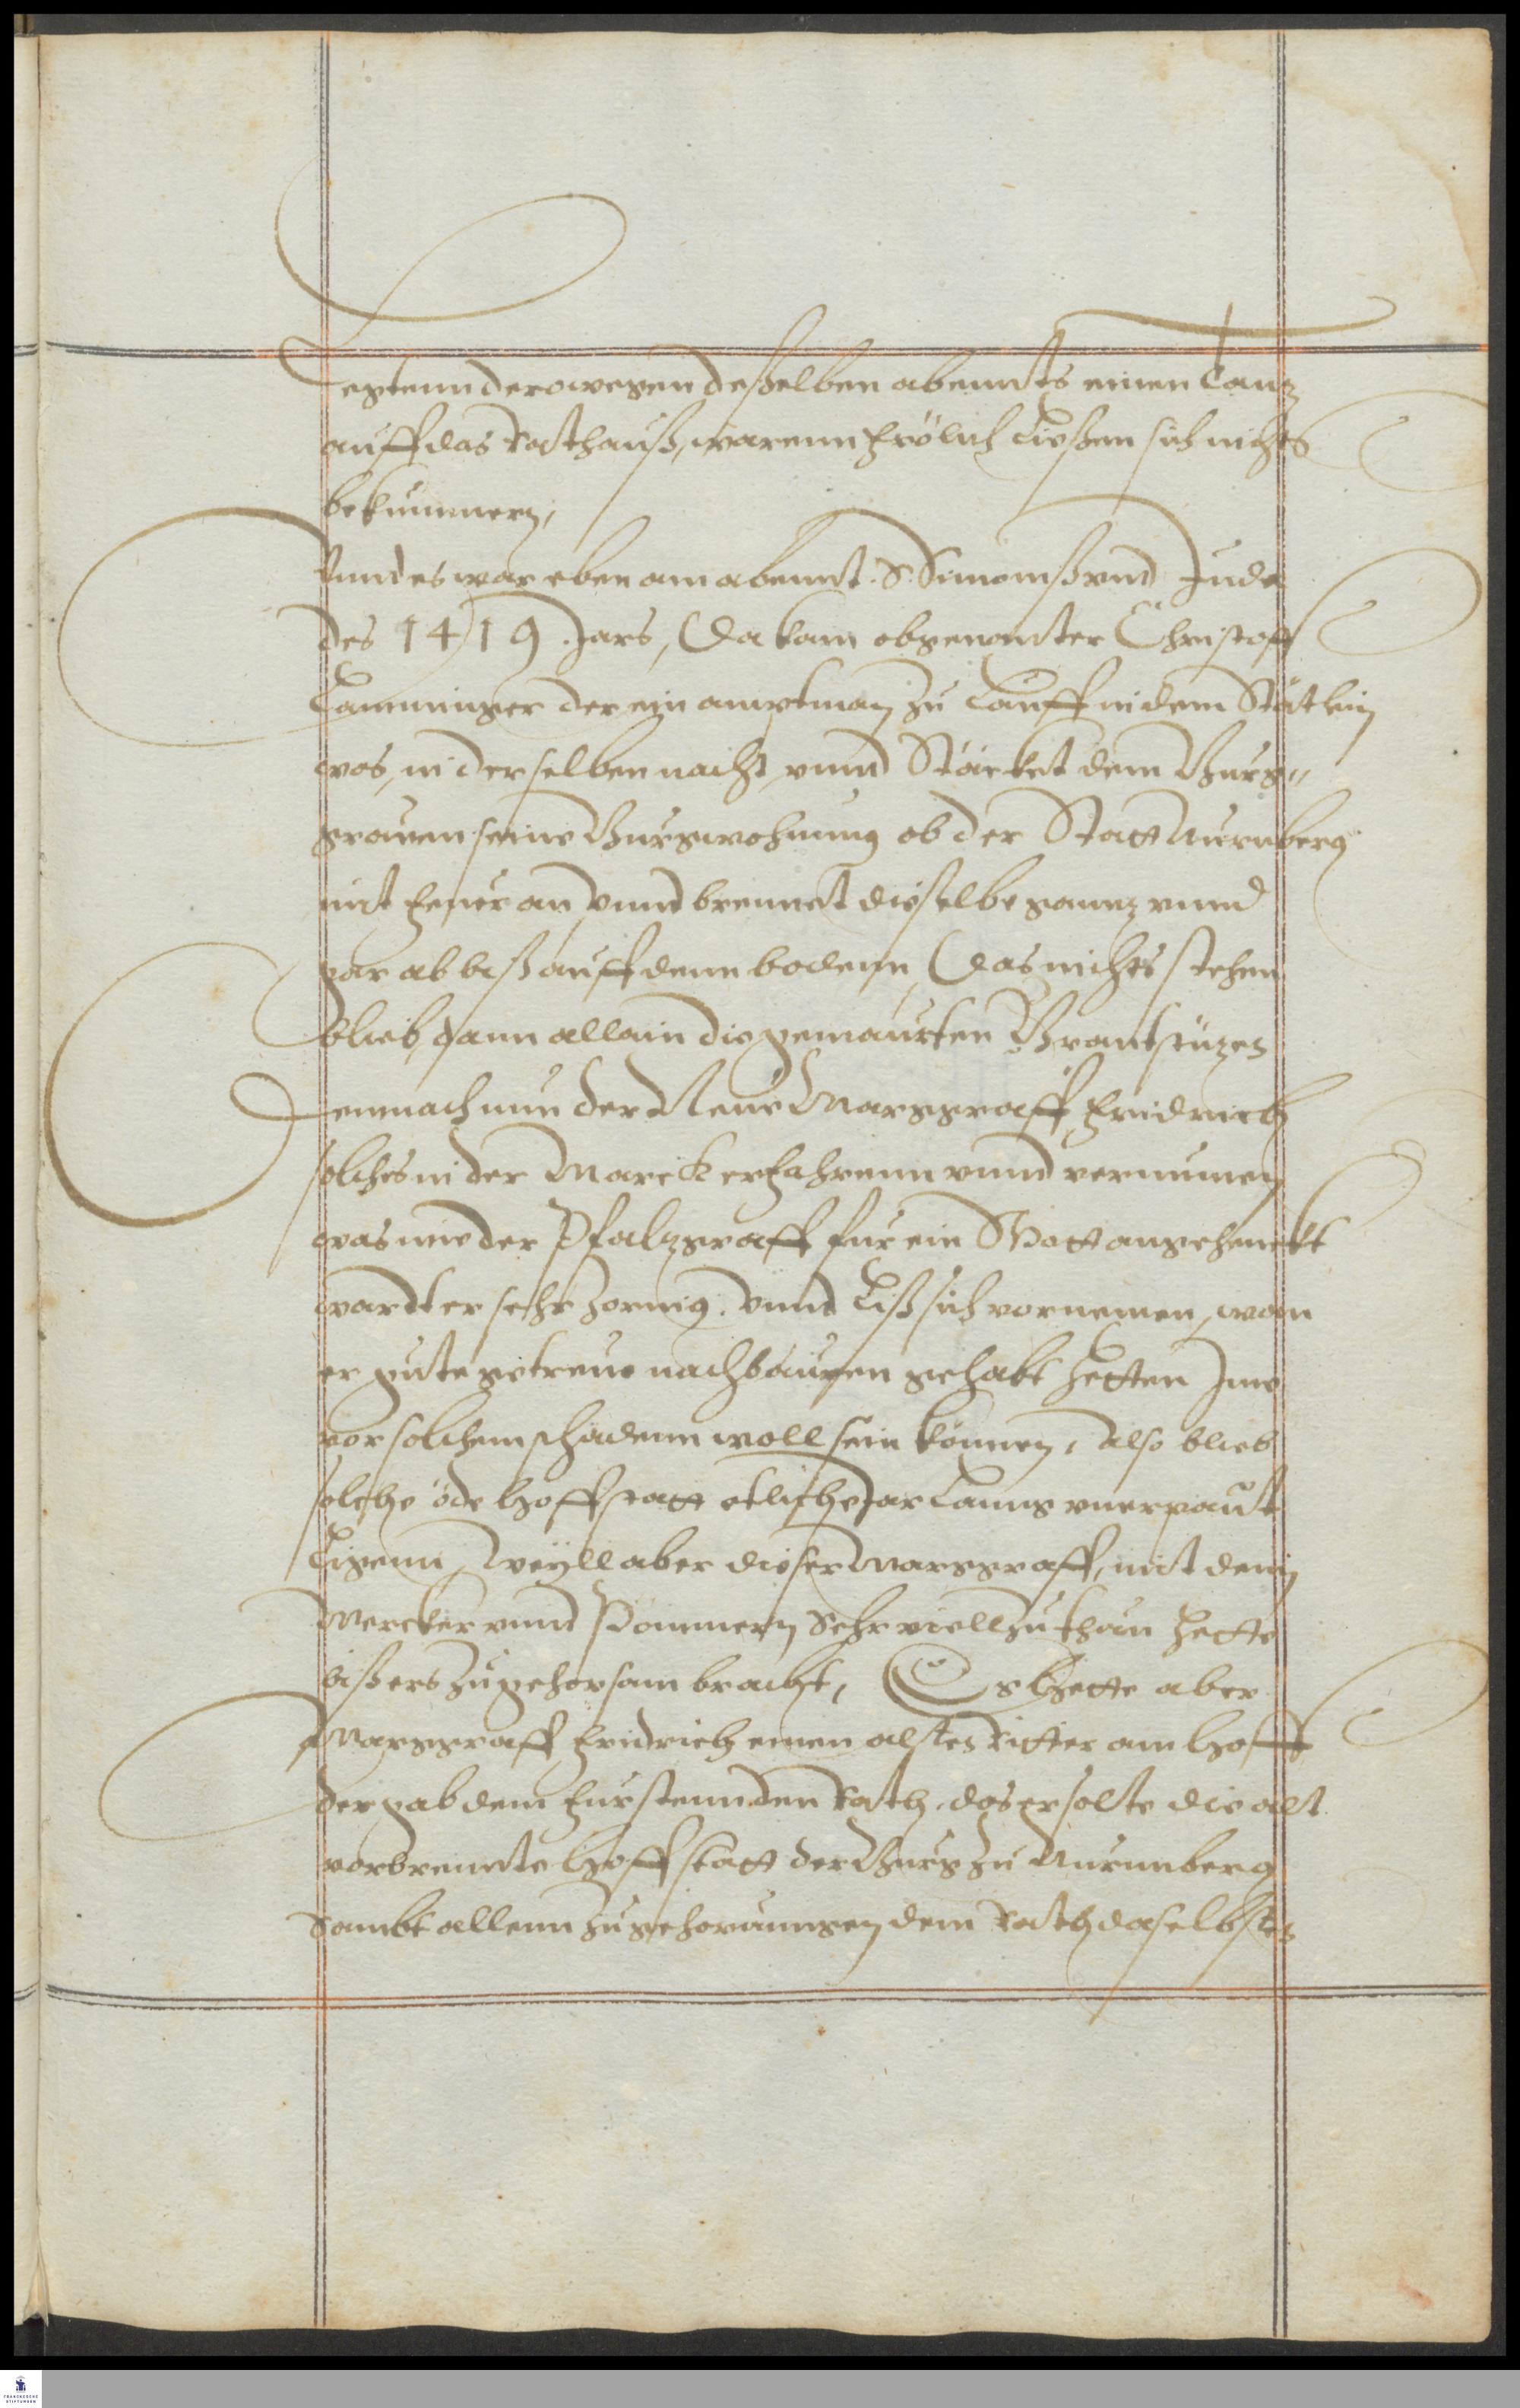 Legtenn derowegen deßelben abennts einen Tanz
auff das Rathauß, warenn frölich ließen sich nichts
bekummern,
Vnnd es war eben am abennt. S. Simonis vnnd Juda
des 1419 Jars, Da kam obgenanter Christoff
Laminger der ein amptman zu Lauff in dem Stätlein
was, in derselben nacht, vnnd Stöcket dem Burg"
grauen seine Burgwohnung ob der Statt Nurnberg
mit Feuer an vnnd brennet dieselbe gannz vnnd
gar ab biß auff denn bodenn, Das nichts stehen
blieb, dann allain die gemaurten Brantstuzen
Demnach nun der Neue Marggraff Fridrich
solches in der Marck erfahrenn vnnd vernumen
was ime der Pfalzgraff fur ein Spott angehenckt
wardt er sehr zornig. vnnd Liß sich vernemen, wan
er gute getreue nachbaurn gehabt hetten Ime
vor solchem schadenn woll sein können, Also blieb
solche öde Hoffstatt etliche Jar Lanng vnerpaut
Ligenn, Weyll aber dieser Marggraff, mit den
Mercker vnnd Pommern Sehr viell zu thun hette
biß ers zu gehorsam bracht, Es Hette aber
Marggraff Fridrich einen alten Ritter am Hoff
der gab dem Furstenn den Rath, das er solte die alt
verbrennte Hoffstatt der Burg zu Nurnnberg
Sambt allenn zugehorungen dem Rath daselbsten
FRANCKESCHE
STIFTUNGEN